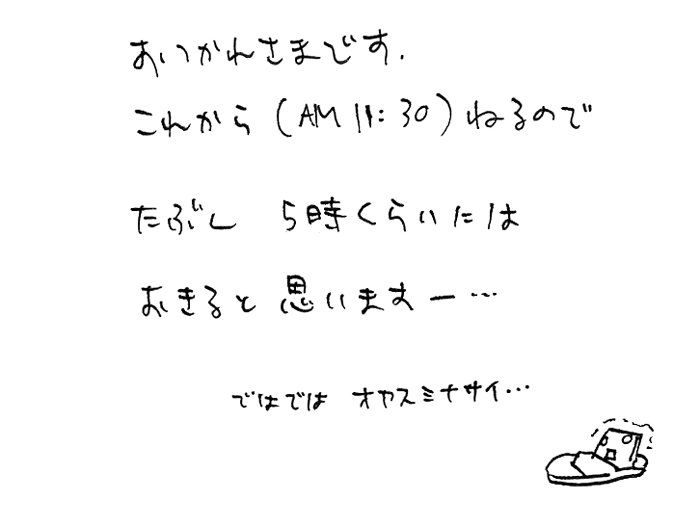 おつかれさまです.
これから (AM 11:30) ねるので
たぶん 5時くらいには
おきると 思いますー…
ではでは オヤスミナサイ…